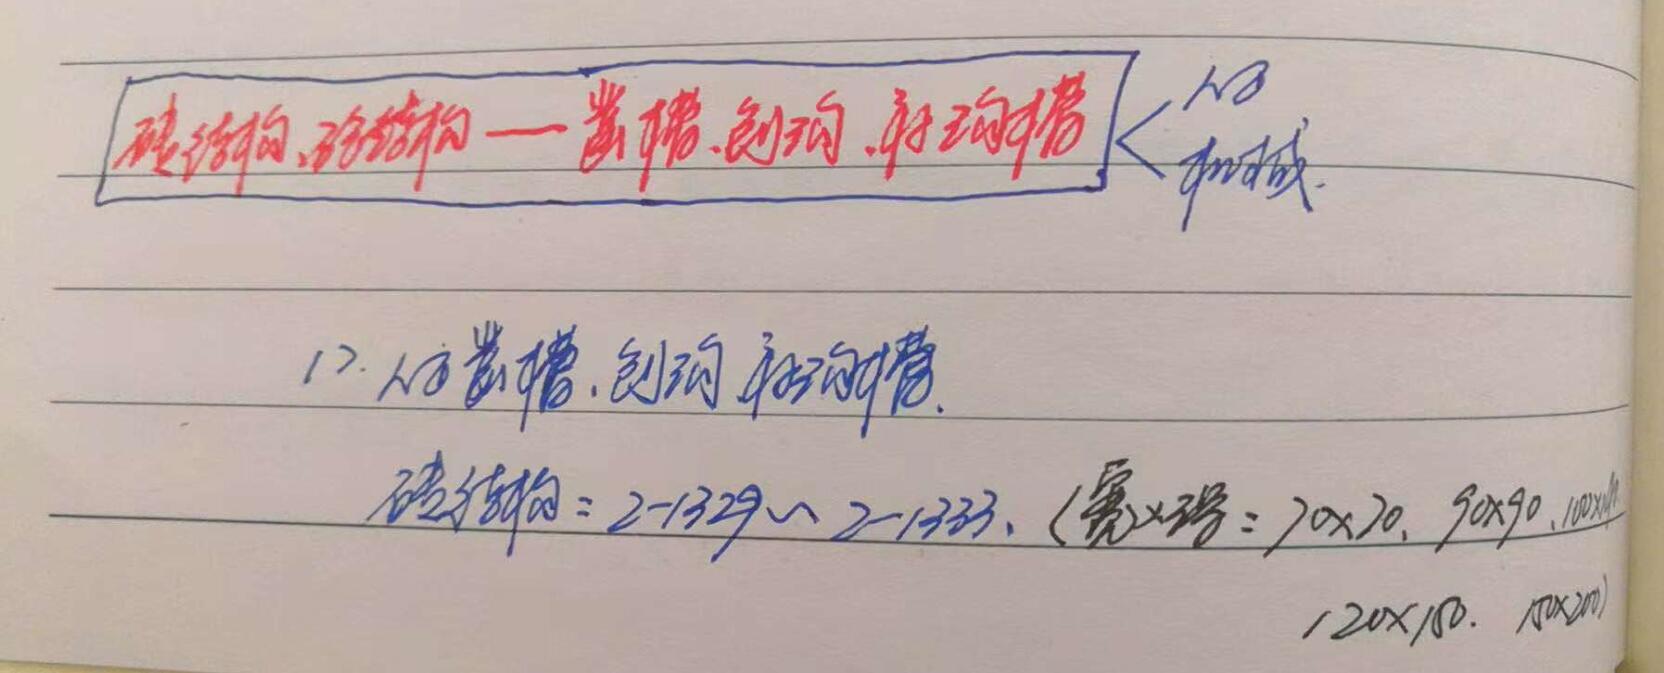 砖结构、砼结构——凿槽、刨沟、补沟槽
人工
机械.
1>. 人工凿槽、刨沟、补沟槽.
砖结构: 2-1329～2-1333. (宽×深: 70×70、90×90、100×140
120×150. 150×200)